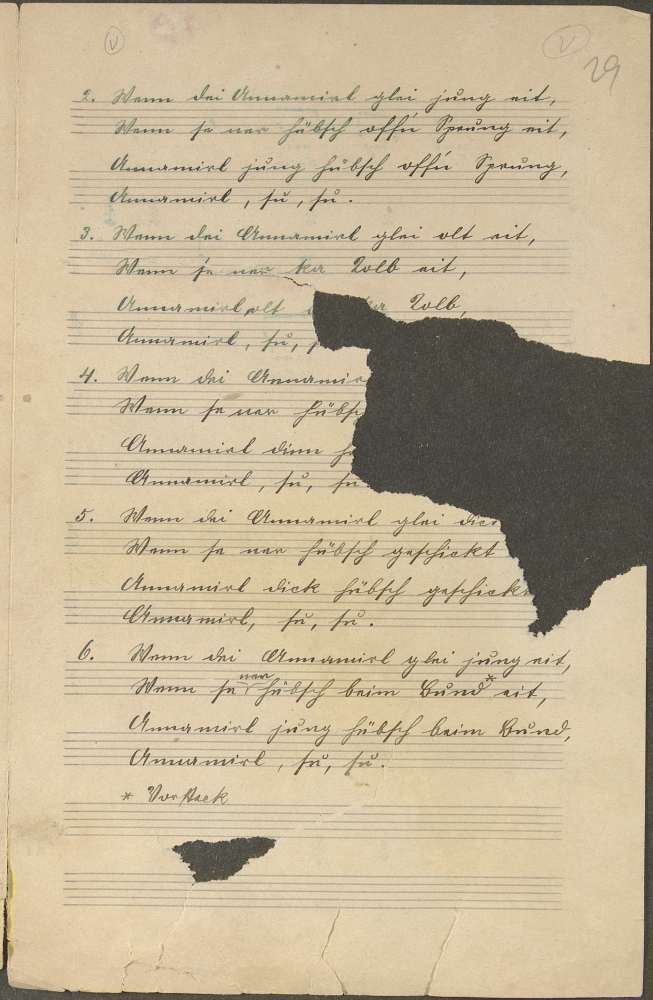 V
V
29
2. Wenn dei Annamirl glei jung eit,
Wenn se ner hübsch offn Sprung eit,
Annamirl jung hübsch offn Sprung,
Annamirl, su, su.
3. Wenn dei Annamirl glei olt eit,
Wenn se ner ka Kolb eit,
Annamirl olt ka Kolb,
Annamirl, su,
4. Wenn dei Annamir
Wenn se ner hübs
Annamirl dinn
Annamirl, su, su
5. Wenn dei Annamirl glei dic
Wenn se ner hübsch geschickt
Annamirl dick hübsch geschickt
Annamirl, su, su.
6. Wenn dei Annamirl glei jung eit,
Wenn se ner hübsch beim Bund* eit,
Annamirl jung hübsch beim Bund,
Annamirl, su, su.
* Vorsteck